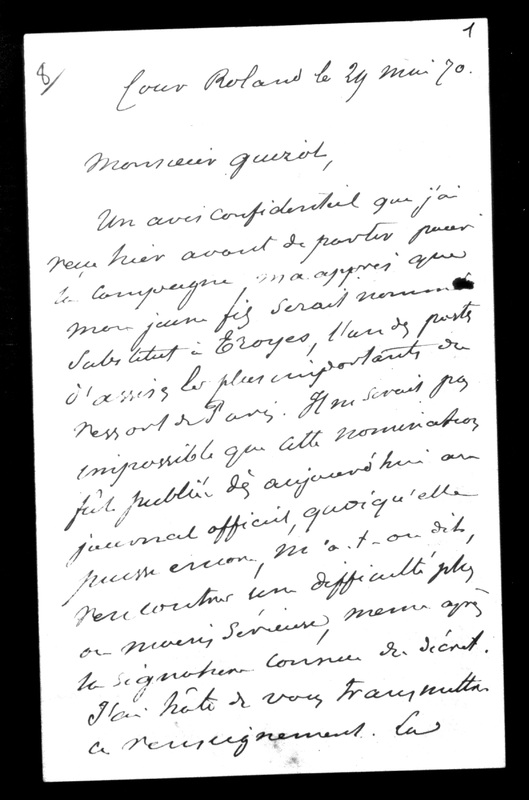 8/
1
Cour Roland le 29 mai 70.
Monsieur Guizot,
Un avis confidentiel que j'ai
reçu hier avant de partir pour
la campagne, m'a appris que
mon jeune fils serait nommé
substitut à Troyes, l'un des postes
d'assises les plus importants du
ressort de Paris. Il ne serait pas
impossible que cette nomination
fût publiée dès aujourd'hui au
journal officiel, quoiqu'elle
puisse encore, m'a-t-on dit,
rencontrer une difficulté plus
ou moins sérieuse, même après
la signature connue du décret.
J'ai hâte de vous transmettre
ce renseignement. La